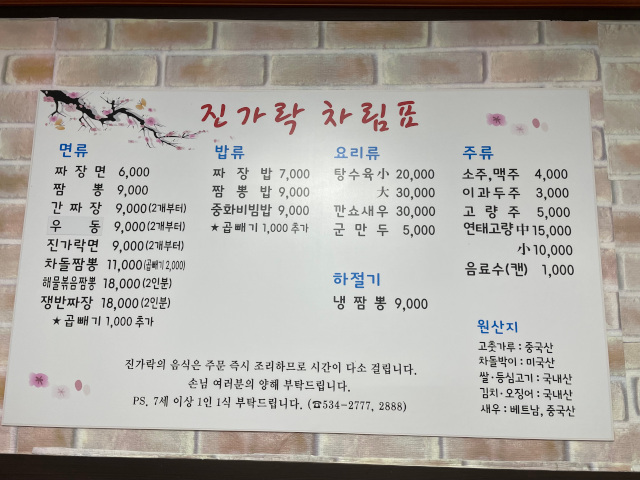 진가락 차림표
면류
짜장면 6,000
짬뽕 9,000
간짜장 9,000(2개부터)
우동 9,000(2개부터)
진가락면 9,000(2개부터)
차돌짬뽕 11,000(곱빼기2,000)
해물볶음짬뽕 18,000(2인분)
쟁반짜장 18,000(2인분)
★곱빼기 1,000 추가
밥류
짜장밥 7,000
짬뽕밥 9,000
중화비빔밥 9,000
★곱빼기 1,000 추가
요리류
탕수육小 20,000
大 30,000
깐쇼새우 30,000
군만두 5,000
하절기
냉짬뽕 9,000
주류
소주,맥주 4,000
이과두주 3,000
고량주 5,000
연태고량中 15,000
小 10,000
음료수(캔) 1,000
원산지
고춧가루 : 중국산
차돌박이 : 미국산
쌀·등심고기 : 국내산
김치·오징어 : 국내산
새우 : 베트남, 중국산
진가락의 음식은 주문 즉시 조리하므로 시간이 다소 걸립니다.
손님 여러분의 양해 부탁드립니다.
PS. 7세 이상 1인 1식 부탁드립니다. (☎534-2777, 2888)